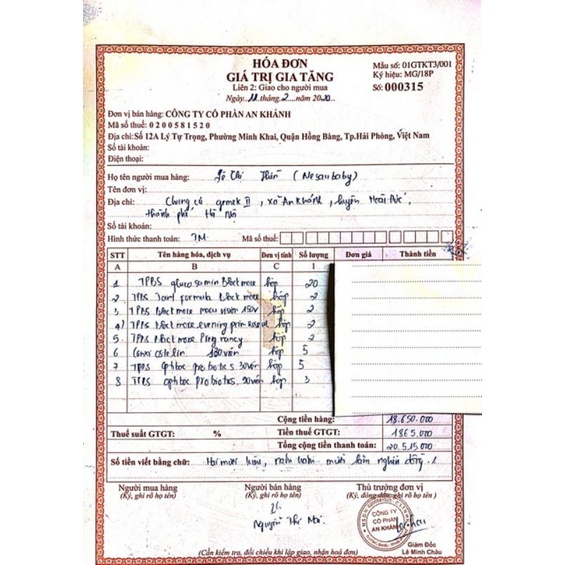 HÓA ĐƠN
GIÁ TRỊ GIA TĂNG
Liên 2: Giao cho người mua
Ngày 11 tháng 2 năm 2020
Mẫu số: 01GTKT3/001
Ký hiệu: MG/18P
Số: 000315
Đơn vị bán hàng: CÔNG TY CỔ PHẦN AN KHÁNH
Mã số thuế: 0200581520
Địa chỉ: Số 12A Lý Tự Trọng, Phường Minh Khai, Quận Hồng Bàng, Tp.Hải Phòng, Việt Nam
Số tài khoản:
Điện thoại:
Họ tên người mua hàng:
Tên đơn vị:
Địa chỉ: Chung cư gemek II, xã An Khánh, huyện Hoài Đức,
thành phố Hà Nội
Số tài khoản:
Hình thức thanh toán: TM Mã số thuế:
STT Tên hàng hóa, dịch vụ Đơn vị tính Số lượng Đơn giá Thành tiền
A B C 1
1 TPBS glucosamin blackmore hộp 20
2 TPBS formula blackmore hộp 2
3 TPBS blackmore hộp 2
4 TPBS blackmore evening hộp 2
5 TPBS blackmore hộp 2
6 130 viên hộp 5
7 TPBS probiotics 30 viên hộp 5
8 TPBS probiotics 90 viên hộp 3
Cộng tiền hàng: 18.650.000
Thuế suất GTGT: % Tiền thuế GTGT: 1865.000
Tổng cộng tiền thanh toán: 20.515.000
Số tiền viết bằng chữ: Hai mươi triệu, năm trăm mười lăm nghìn đồng./
Người mua hàng
(Ký, ghi rõ họ tên)
Người bán hàng
(Ký, ghi rõ họ tên)
Thủ trưởng đơn vị
(Ký, đóng dấu, ghi rõ họ tên)
CÔNG TY
CỔ PHẦN
AN KHÁNH
Giám Đốc
Lê Minh Châu
(Cần kiểm tra, đối chiếu khi lập giao, nhận hoá đơn)